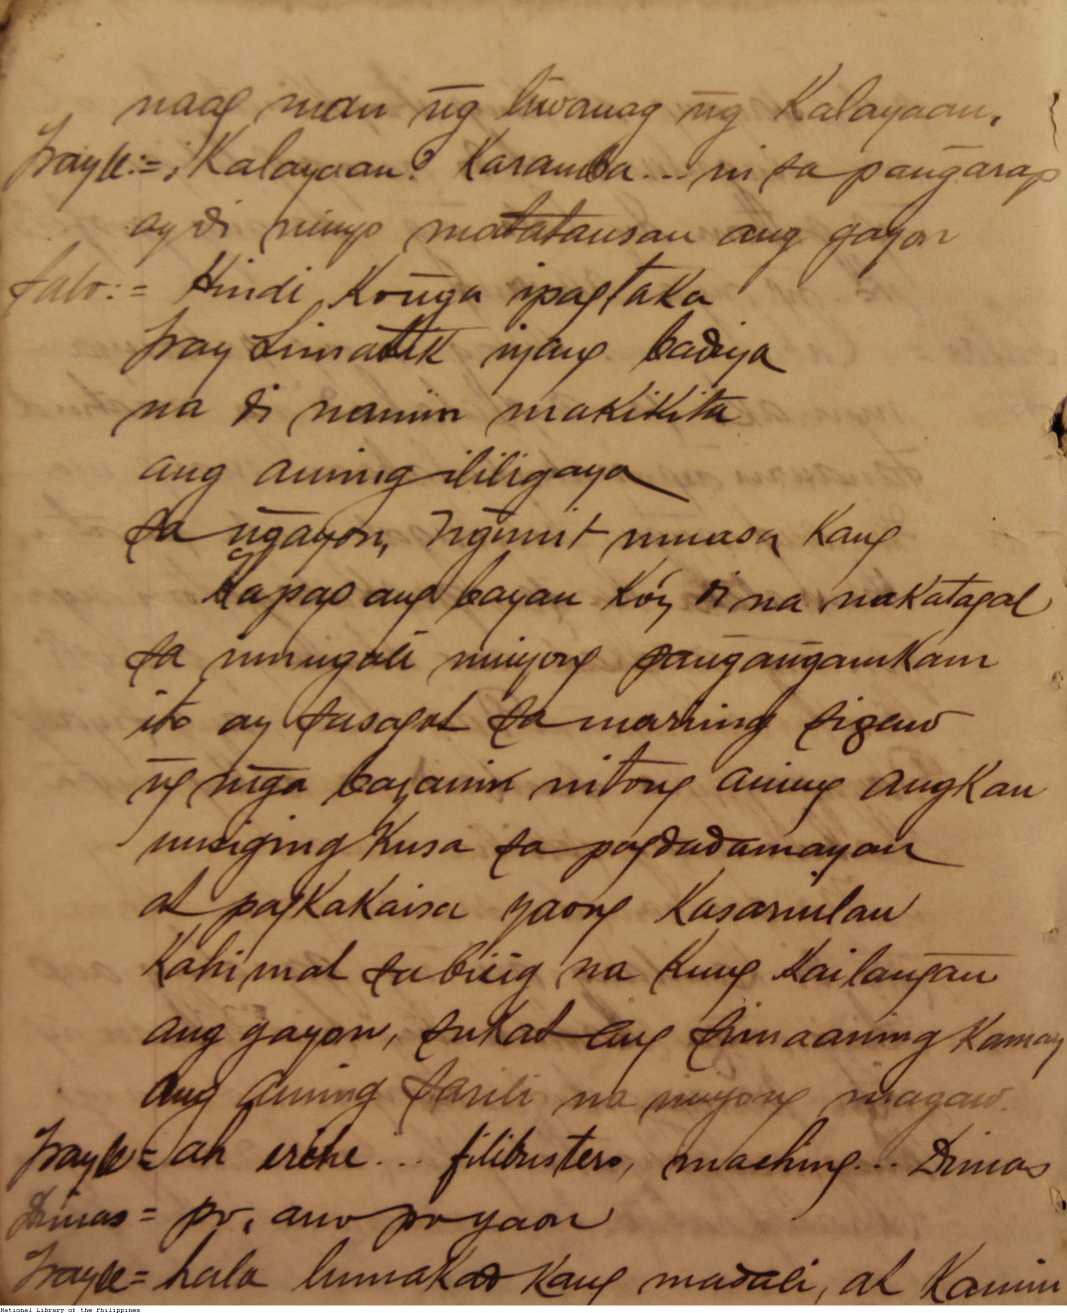 naag man n͠g liwanag n͠g Kalayaan.
Frayle:= ¡Kalayaan? Karamba... ni sa pan͠garap
ay di ninyo matatausan ang gayon
Salv:= Hindi Kon͠ga ipagtaka
Fray Limatik iyang badiya
na di namin makikita
ang aming ililigaya
sa n͠gayon, N͠gunit umasa Kang
Kapag ang bayan Ko'y di na nakatagal
sa inugali ninyong pan͠gan͠gamkam
ito ay sasagot sa marining sigaw
n͠g m͠ga bayanin nitong aming angkan
 Kusa sa pagdadamayan
at pagkakaisa yaong Kasarinlan
Kahimat sa bisig na Kung Kailan͠gan
ang gayon, sukat ang aming Kamay
ang aming sarili na ninyong inagaw.
Frayle= ah erehe... filibustero, maching... Dimas
Dimas= po, ano po yaon
Frayle= hala lumakad Kang madali, at Kamin
National Library of the Philippines